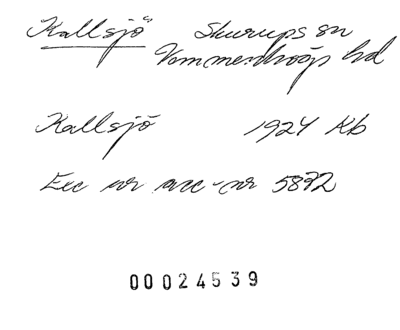 Kallsjö Skurups sn
Vemmenhögs hd
Kallsjö 1924 Kb
Exc ur acc-nr 5892
00024539